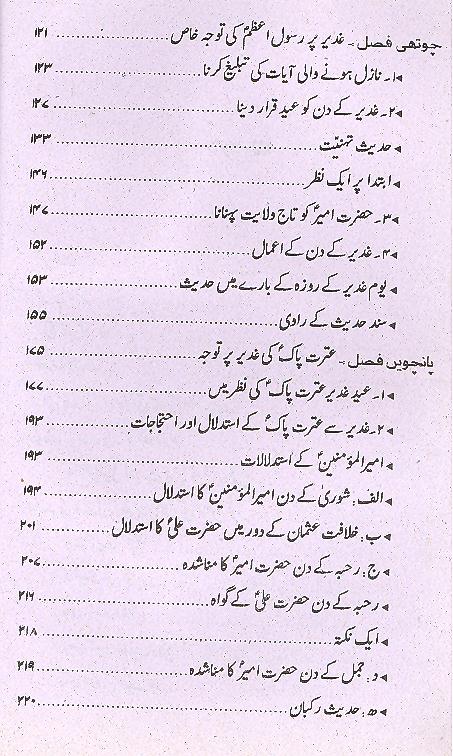 چوتھی فصل۔ غدیر پر رسول اعظمؐ کی توجہ خاص ۱۲۱
۱۔ نازل ہونے والی آیات کی تبلیغ کرنا ۱۲۳
۲۔ غدیر کے دن کو عید قرار دینا ۱۲۷
حدیث تہنیّت ۱۳۳
ابتدا پر ایک نظر ۱۴۶
۳۔ حضرت امیرؑ کو تاج ولایت پہنانا ۱۴۷
۴۔ غدیر کے دن کے اعمال ۱۵۲
یوم غدیر کے روزہ کے بارے میں حدیث ۱۵۳
سند حدیث کے راوی ۱۵۵
پانچویں فصل۔ عترت پاکؑ کی غدیر پر توجہ ۱۷۵
۱۔ عید غدیر عترت پاکؑ کی نظر میں ۱۷۷
۲۔ غدیر سے عترت پاکؑ کے استدلال اور احتجاجات ۱۹۳
امیر المؤمنینؑ کے استدلالات ۱۹۳
الف: شوریٰ کے دن امیر المؤمنینؑ کا استدلال ۱۹۴
ب: خلافت عثمان کے دور میں حضرت علیؑ کا استدلال ۲۰۱
ج: رحبہ کے دن حضرت امیرؑ کا مناشدہ ۲۰۷
رحبہ کے دن حضرت علیؑ کے گواہ ۲۱۶
ایک نکتہ ۲۱۸
د: جمل کے دن حضرت امیرؑ کا مناشدہ ۲۱۹
ھ: حدیث رکبان ۲۲۰